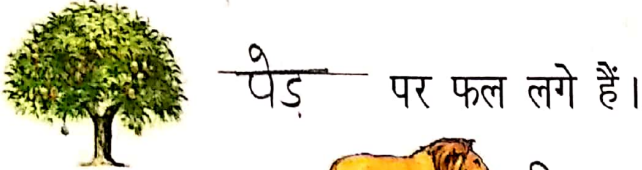 पेड़ पर फल लगे हैं।